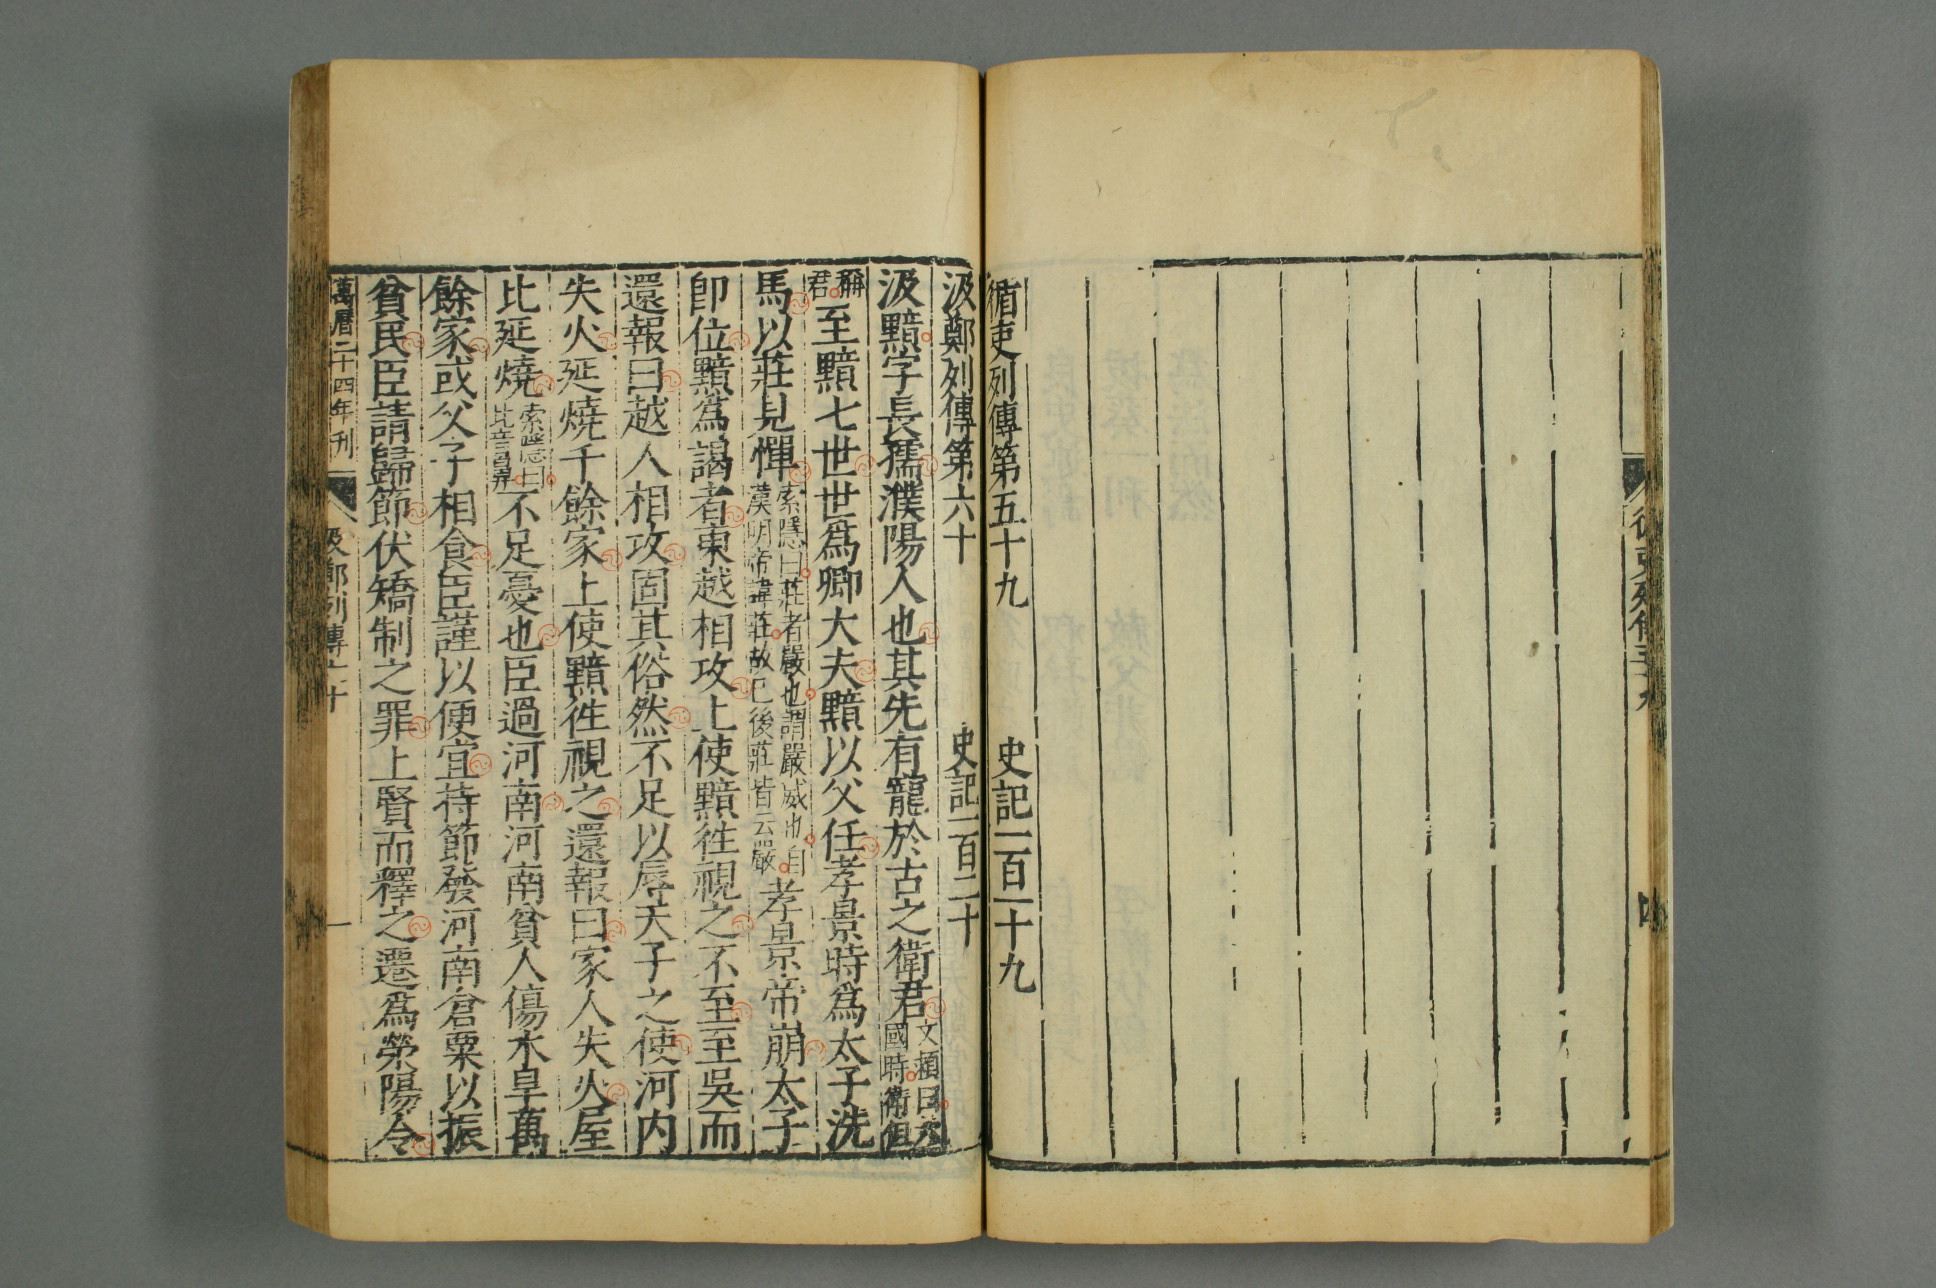 循吏列傳五十九
四
循吏列傳第五十九 史記一百一十九
汲鄭列傳第六十 史記一百二十
汲黯字長孺濮陽人也其先有寵於古之衛君文穎曰六國時衛但
稱君至黯七世世爲卿大夫黯以父任孝景時爲太子洗
馬以莊見憚索隱曰莊者嚴也謂嚴威也自漢明帝諱莊故已後莊皆云嚴孝景帝崩太子
即位黯爲謁者東越相攻上使黯徃視之不至至吳而
還報曰越人相攻固其俗然不足以辱天子之使河内
失火延燒千餘家上使黯徃視之還報曰家人失火屋
比延燒索隱曰比音鼻不足憂也臣過河南河南貧人傷水旱萬
餘家或父子相食臣謹以便宜持節發河南倉粟以振
貧民臣請歸節伏矯制之罪上賢而釋之遷爲滎陽令
萬曆二十四年刊
汲鄭列傳六十
一